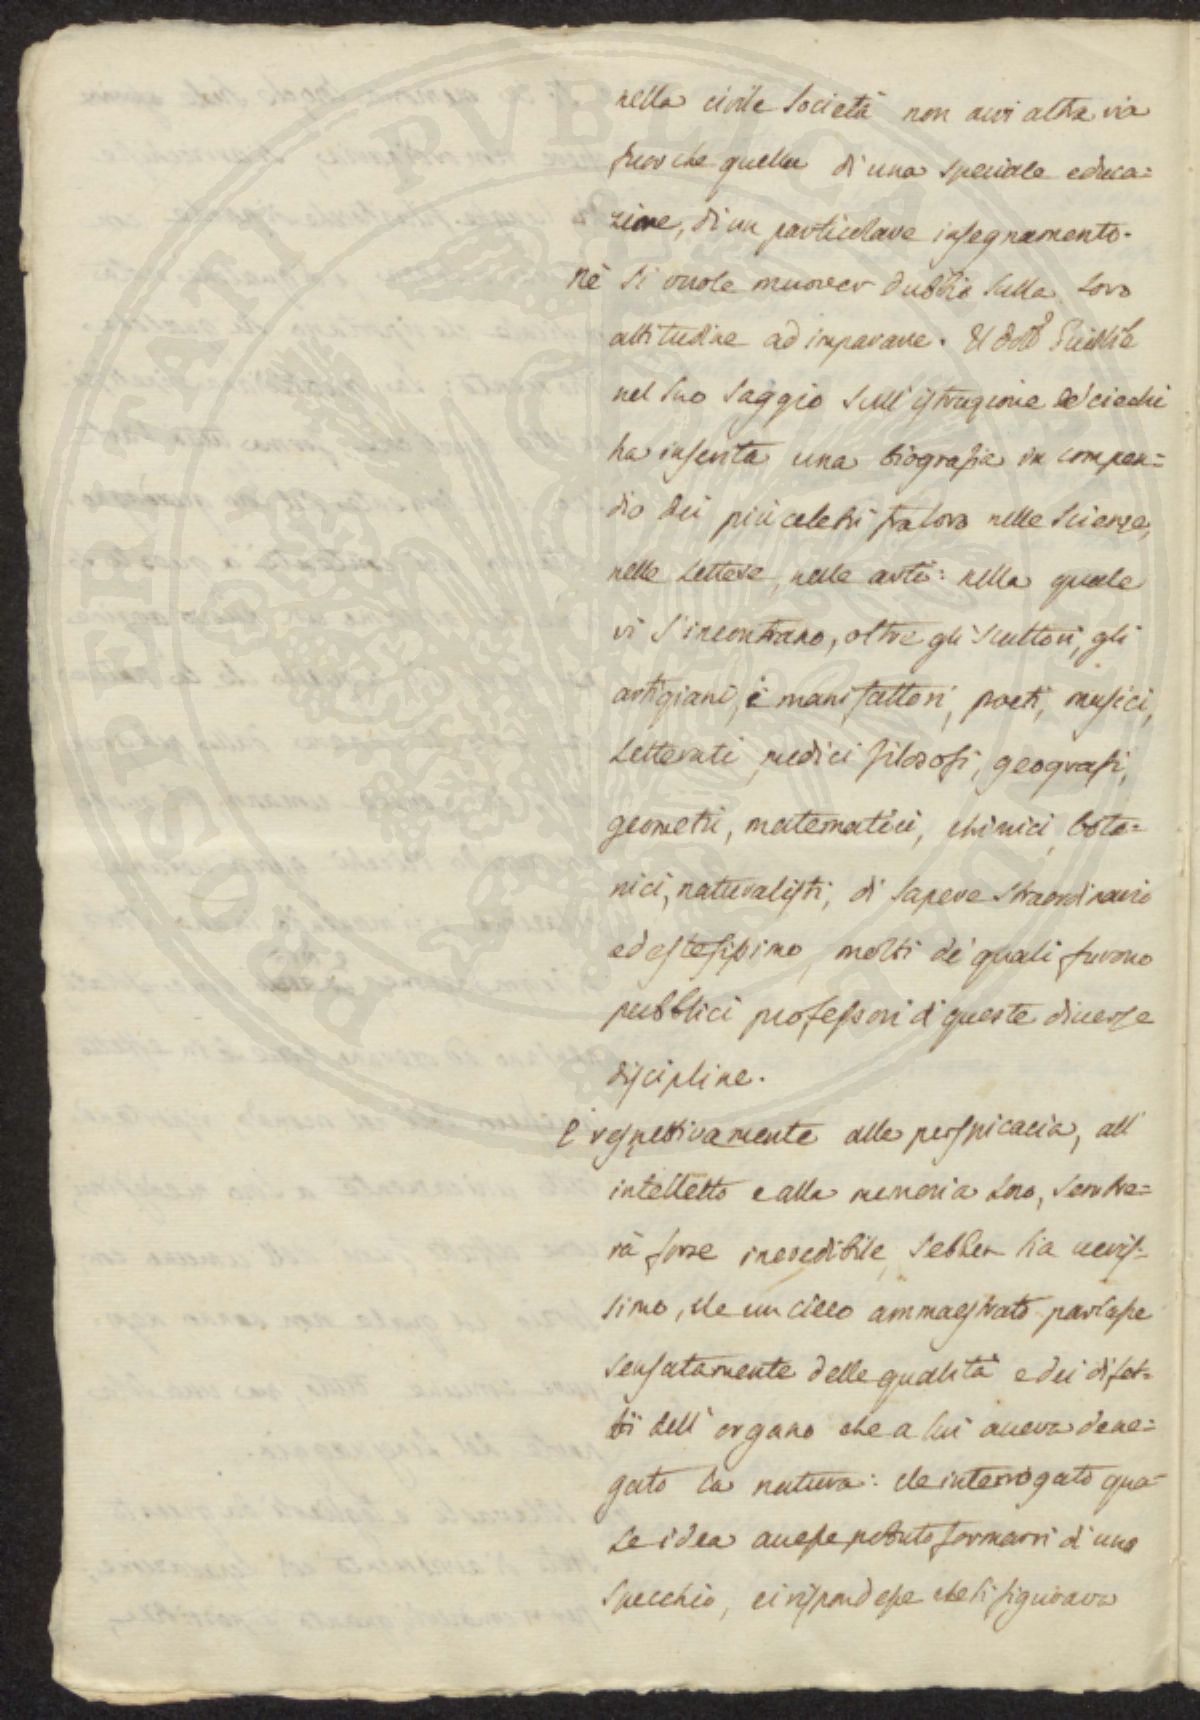 nella civile Società non avvi altra via
fuorche quella di una speciale educa=
zione, di un particolare insegnamento.
Nè si vuole muover dubbio sulla loro
attitudine ad imparare. Il Dott.r
nel suo Saggio sull'istruzione de' ciechi
ha inserita una biografia in compen=
dio dei più celebri fra loro nelle Scienze,
nelle Lettere, nelle arti: nella quale
vi s'incontrano, oltre gli Scultori, gli
artigiani, i manifattori, poeti, musici,
Letterati, medici filosofi, geografi,
geometri, matematici, chimici, bota=
nici, naturalisti, di sapere straordinario
ed estesissimo, molti de' quali furono
pubblici professori di queste diverse
discipline.
E respettivamente alla perspicacia, all'
intelletto e alla memoria loro, sembre=
rà forse incredibile, sebben sia veris=
simo, che un cieco ammaestrato parlasse
sensatamente delle qualità e dei difet=
ti dell'organo che a lui aveva dene=
gato la natura: che interrogato qua=
le idea avesse potuto formarsi di uno
specchio, ei rispondesse che si figurava
PROSPERITATI PVBLICAE